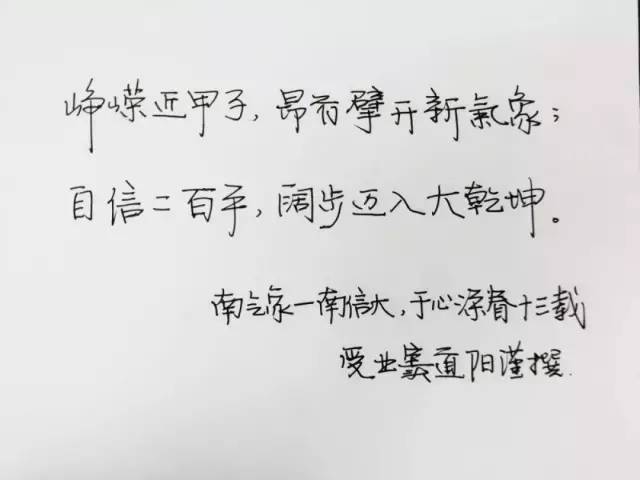 峥嵘近甲子,昂首擘开新氣象;
自信二百年,阔步迈入大乾坤。
南气象—南信大,于心深眷十三载
受业道阳谨撰.